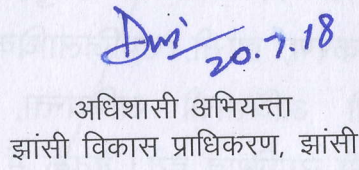 20.7.18
अधिशासी अभियन्ता
झांसी विकास प्राधिकरण, झांसी